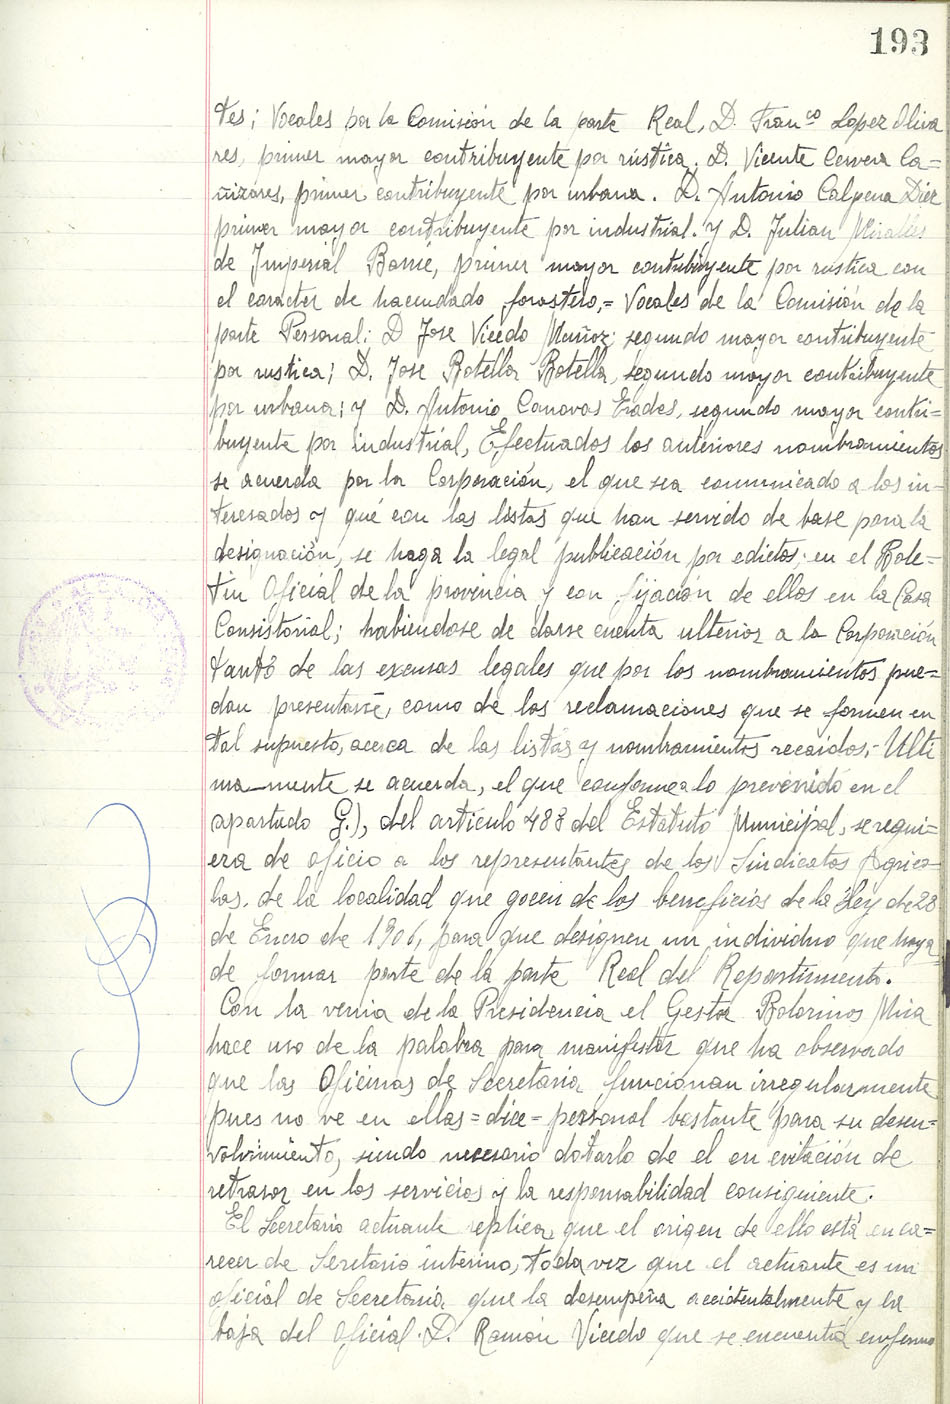 193
tes; Vocales por la Comisión de la parte Real, D. Franco Lopez Oliva
res, primer mayor contribuyente por rústica. D. Vicente Cervera Ca=
ñizares, primer contribuyente por urbana. D. Antonio Calpena Diez
primer mayor contribuyente por industrial. y D. Julian Miralles
de Imperial Barrie, primer mayor contribuyente por rustica con
el caracter de hacendado forastero,= Vocales de la Comisión de la
parte Personal: D Jose Vicedo Muñoz; segundo mayor contribuyente
por rustica; D. Jose Botella Botella, segundo mayor contribuyente
por urbana; y D. Antonio Canovas Erades, segundo mayor contri=
buyente por industrial, Efectuados los anteriores nombramientos
se acuerda por la Corporación, el que sea comunicado a los in=
teresados y que con las listas que han servido de base para la
designación, se haga la legal publicación por edictos; en el Bole=
tin Oficial de la provincia y con fijación de ellos en la Casa
Consistorial; habiendose de darse cuenta ulterior a la Corporación
tanto de las excusas legales que por los nombramientos pue=
dan presentarse, como de las reclamaciones que se formen en
tal supuesto, acerca de las listas y nombramientos recaidos,- Ulti
ma_mente se acuerda, el que conforme a lo prevenido en el
apartado G.), del articulo 483 del Estatuto Municipal, se requi=
era de oficio a los representantes de los Sindicatos Agrico=
las. de la localidad que gocen de los beneficios de la Ley de 28
de Enero de 1906, para que designen un individuo que haya
de formar parte de la parte Real del Repartimiento.
Con la venia de la Presidencia el Gestor Bolorinos Mira
hace uso de la palabra para manifestar que ha observado
que las Oficinas de Secretaria funcionan irregularmente
pues no ve en ellas = dice = personal bastante para su desen=
volvimiento, siendo necesario dotarlo de el en evitación de
retrasos en los servicios y la responsabilidad consiguiente.
El Secretario actuante replica, que el origen de ello está en ca=
recer de Secretario interino, toda vez que el actuante es un
oficial de Secretaria que la desempeña accidentalmente y la
baja del Oficial D. Ramón Vicedo que se encuentra enfermo